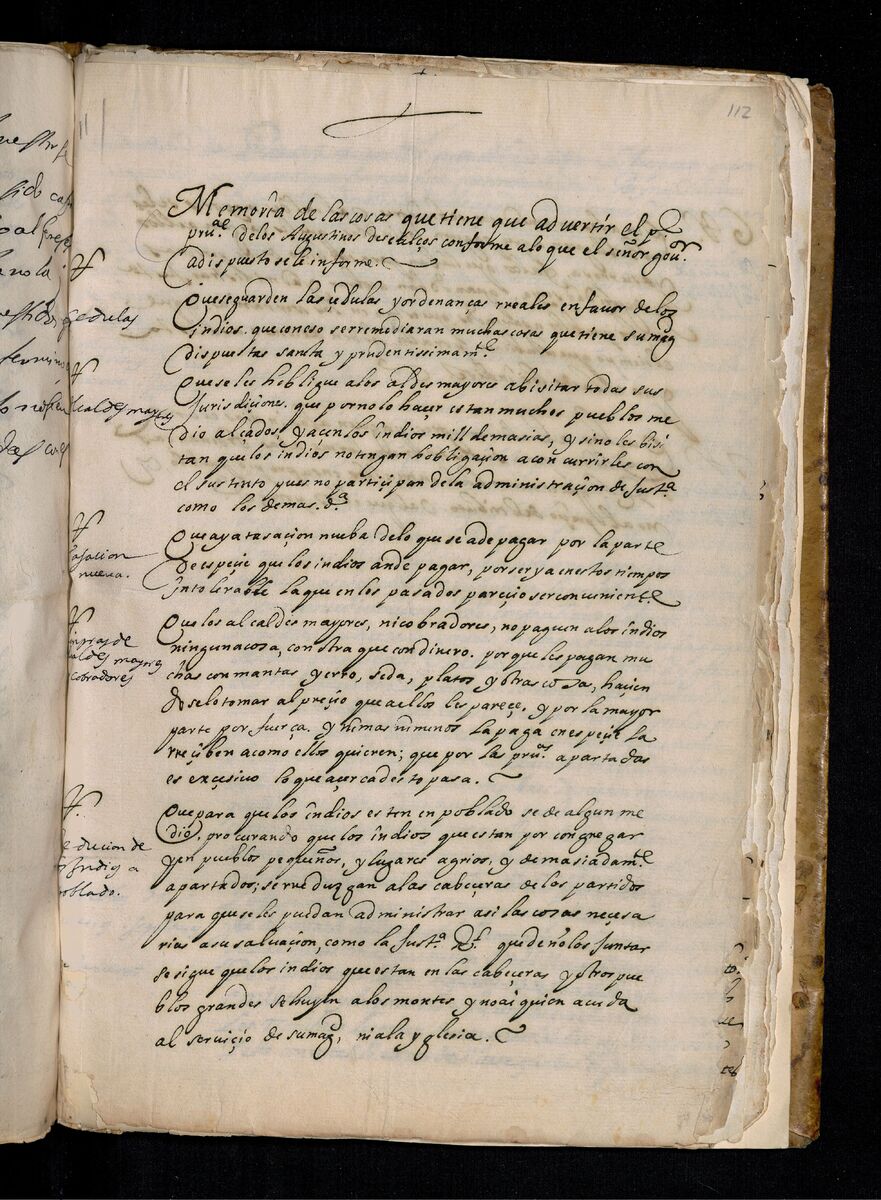 112
Memoria de las cosas que tiene que advertir el pe
prual de los Augustinos descalços conforme alo que el señor gouor
a dispuesto se le informe.
Cedulas
Que se guarden las çedulas y ordenanças rreales en favor de los
indios. que con eso se rremediaran muchas cosas que tiene su magd
dispuestas sancta y prudentissimamte
Alcaldes mayores
Que se les hobligue a los aldes mayores a bisitar todas sus
Jurisdiçiones. que por no lo haçer estan muchos pueblos me
dio alçados, y açen los indios mill demasias, y si no les bisi
tan que los indios no tengan hobligaçion a con currirles con
el sustento pues no participan de la administraçion de Justa
como los demas. da
tasacion
nueva.
Que aya tasaçion nueba de lo que se a de pagar por la parte
De espeçie que los indios an de pagar, por ser ya en estos tiempos
intolerable la que en los pasados pareçio ser conueniente.
pagas de
alcaldes mayores
cobradores
Que los alcaldes mayores, ni cobradores, no paguen a los indios
ninguna cosa, con otra que con dinero. porque les pagan mu
chas con mantas yerro, seda, platos y otras cosas, haçien
doselo tomar al preçio que a ellos les pareçe. y por la mayor
parte por fuerça. y ni mas ni menos la paga en espeçie la
rreçiben a como ellos quieren; que por las pruas apartadas
es exçesivo lo que açerca desto pasa.
Reducion de
los Indios a
poblado.
Que para que los indios esten en poblado se de algun me
dio, procurando que los indios que estan por congregar
y en pueblos pequeños, y lugares agrios, y demasiadamte
apartados; se rreduzgan a las cabeçeras de los partidos
para que se les puedan administrar asi las cosas neçesa
rias a su saluaçion, como la Justa Rl que de no los Juntar
se sigue que los indios que estan en las cabeçeras y otros pue
blos grandes se huyen a los montes y no ai quien acuda
al serviçio de su magd, ni a la yglesia.